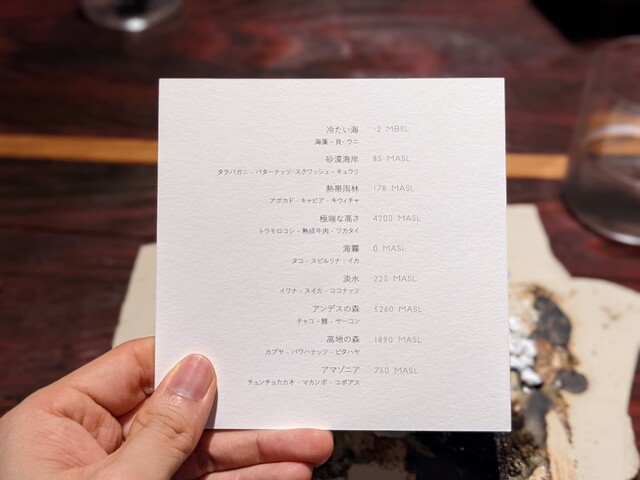 冷たい海 -2 MBSL
海藻 - 貝 - ウニ
砂漠海岸 85 MASL
タラバガニ - バターナッツ・スクワッシュ - キュウリ
熱帯雨林 178 MASL
アボカド - キャビア - キウィチャ
極端な高さ 4200 MASL
トウモロコシ - 熟成牛肉 - ワカタイ
海霧 0 MASL
タコ - スピルリナ - イカ
淡水 225 MASL
イワナ - スイカ - ココナッツ
アンデスの森 3260 MASL
チャコ - 豚 - ヤーコン
高地の森 1890 MASL
カブヤ - パワハナッツ - ピタハヤ
アマゾニア 750 MASL
チュンチョカカオ - マカンボ - コポアス